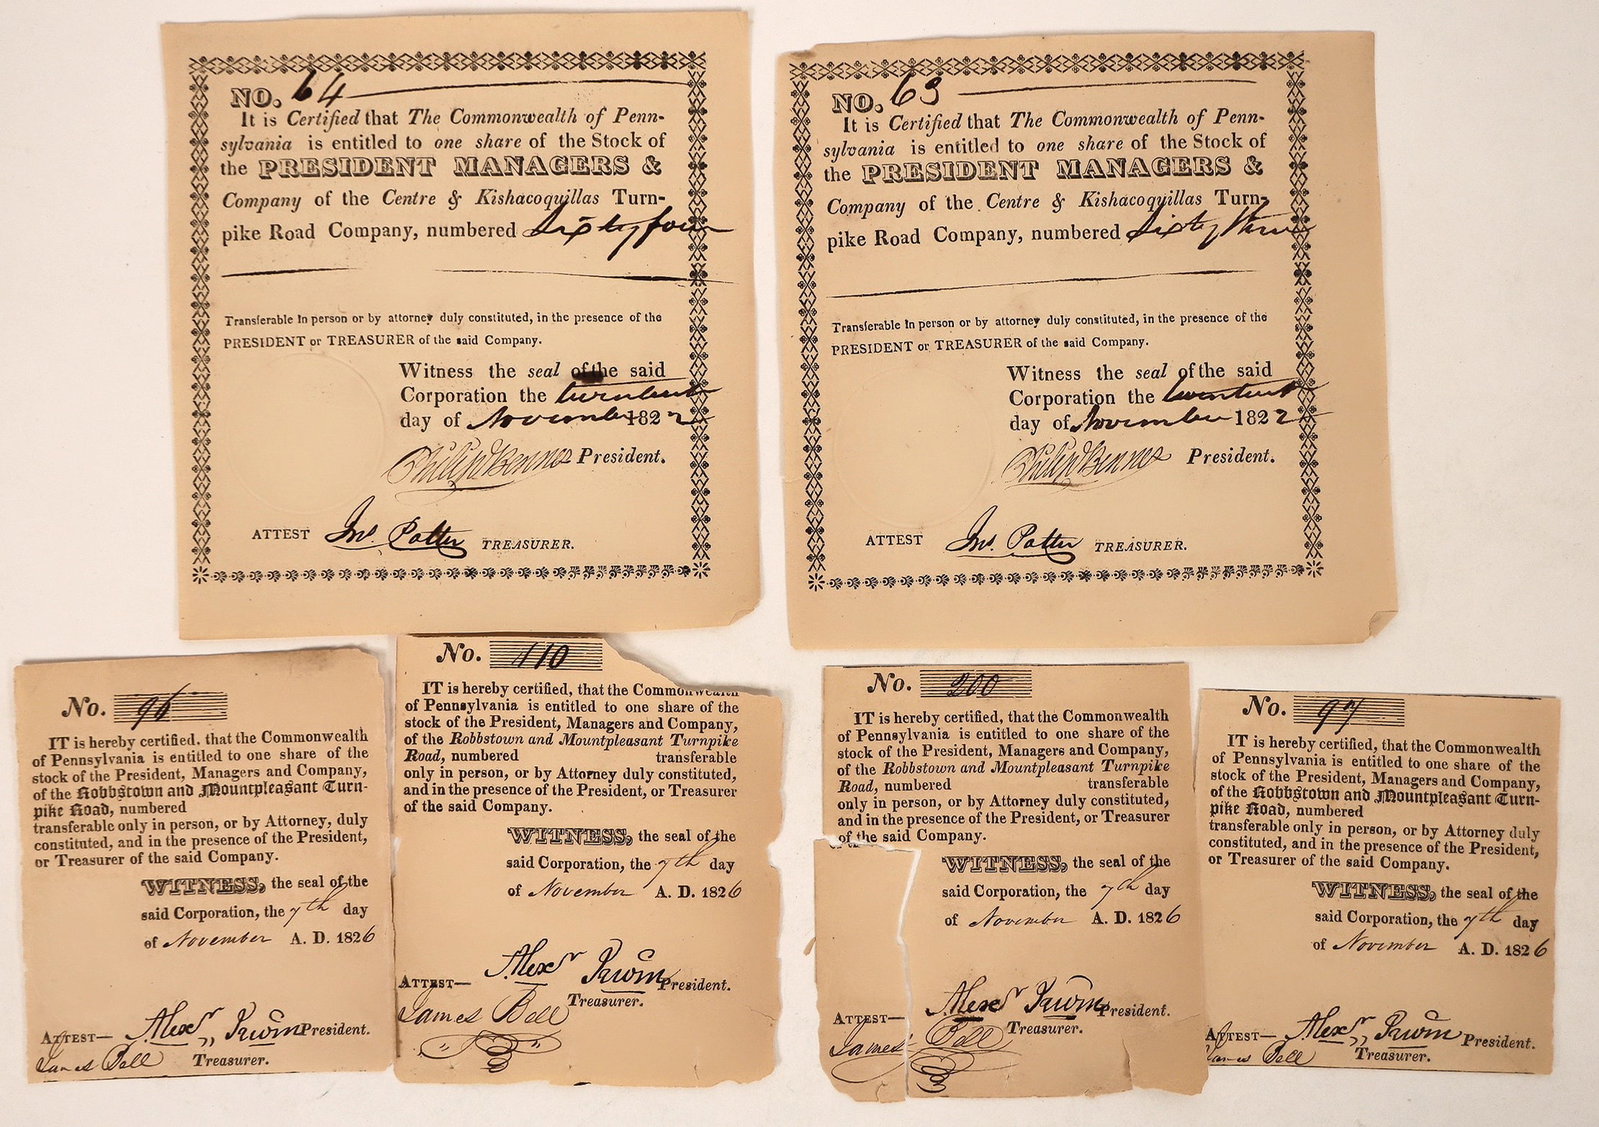 NO. 64
It is Certified that The Commonwealth of Penn-
sylvania is entitled to one share of the Stock of
the PRESIDENT MANAGERS &
Company of the Centre & Kishacoquillas Turn-
pike Road Company, numbered Sixty four
Transferable in person or by attorney duly constituted, in the presence of the
PRESIDENT or TREASURER of the said Company.
Witness the seal of the said
Corporation the twentieth
day of November 1822
Philip Benner President.
ATTEST Jno. Potter TREASURER.
NO. 63
It is Certified that The Commonwealth of Penn-
sylvania is entitled to one share of the Stock of
the PRESIDENT MANAGERS &
Company of the Centre & Kishacoquillas Turn-
pike Road Company, numbered Sixty three
Transferable in person or by attorney duly constituted, in the presence of the
PRESIDENT or TREASURER of the said Company.
Witness the seal of the said
Corporation the twentieth
day of November 1822
Philip Benner President.
ATTEST Jno. Potter TREASURER.
No. 96
IT is hereby certified, that the Commonwealth
of Pennsylvania is entitled to one share of the
stock of the President, Managers and Company,
of the Robbstown and Mountpleasant Turn-
pike Road, numbered
transferable only in person, or by Attorney, duly
constituted, and in the presence of the President,
or Treasurer of the said Company.
WITNESS, the seal of the
said Corporation, the 7th day
of November A. D. 1826
Alexr Irwin President.
ATTEST—
James Bell Treasurer.
No. 110
IT is hereby certified, that the Commonwealth
of Pennsylvania is entitled to one share of the
stock of the President, Managers and Company,
of the Robbstown and Mountpleasant Turnpike
Road, numbered transferable
only in person, or by Attorney duly constituted,
and in the presence of the President, or Treasurer
of the said Company.
WITNESS, the seal of the
said Corporation, the 7th day
of November A. D. 1826
Alexr Irwin President.
ATTEST—
James Bell Treasurer.
No. 200
IT is hereby certified, that the Commonwealth
of Pennsylvania is entitled to one share of the
stock of the President, Managers and Company,
of the Robbstown and Mountpleasant Turnpike
Road, numbered transferable
only in person, or by Attorney duly constituted,
and in the presence of the President, or Treasurer
of the said Company.
WITNESS, the seal of the
said Corporation, the 7th day
of November A. D. 1826
Alexr Irwin President.
ATTEST—
James Bell Treasurer.
No. 97
IT is hereby certified, that the Commonwealth
of Pennsylvania is entitled to one share of the
stock of the President, Managers and Company,
of the Robbstown and Mountpleasant Turn-
pike Road, numbered
transferable only in person, or by Attorney duly
constituted, and in the presence of the President,
or Treasurer of the said Company.
WITNESS, the seal of the
said Corporation, the 7th day
of November A. D. 1826
Alexr Irwin President.
ATTEST—
James Bell Treasurer.